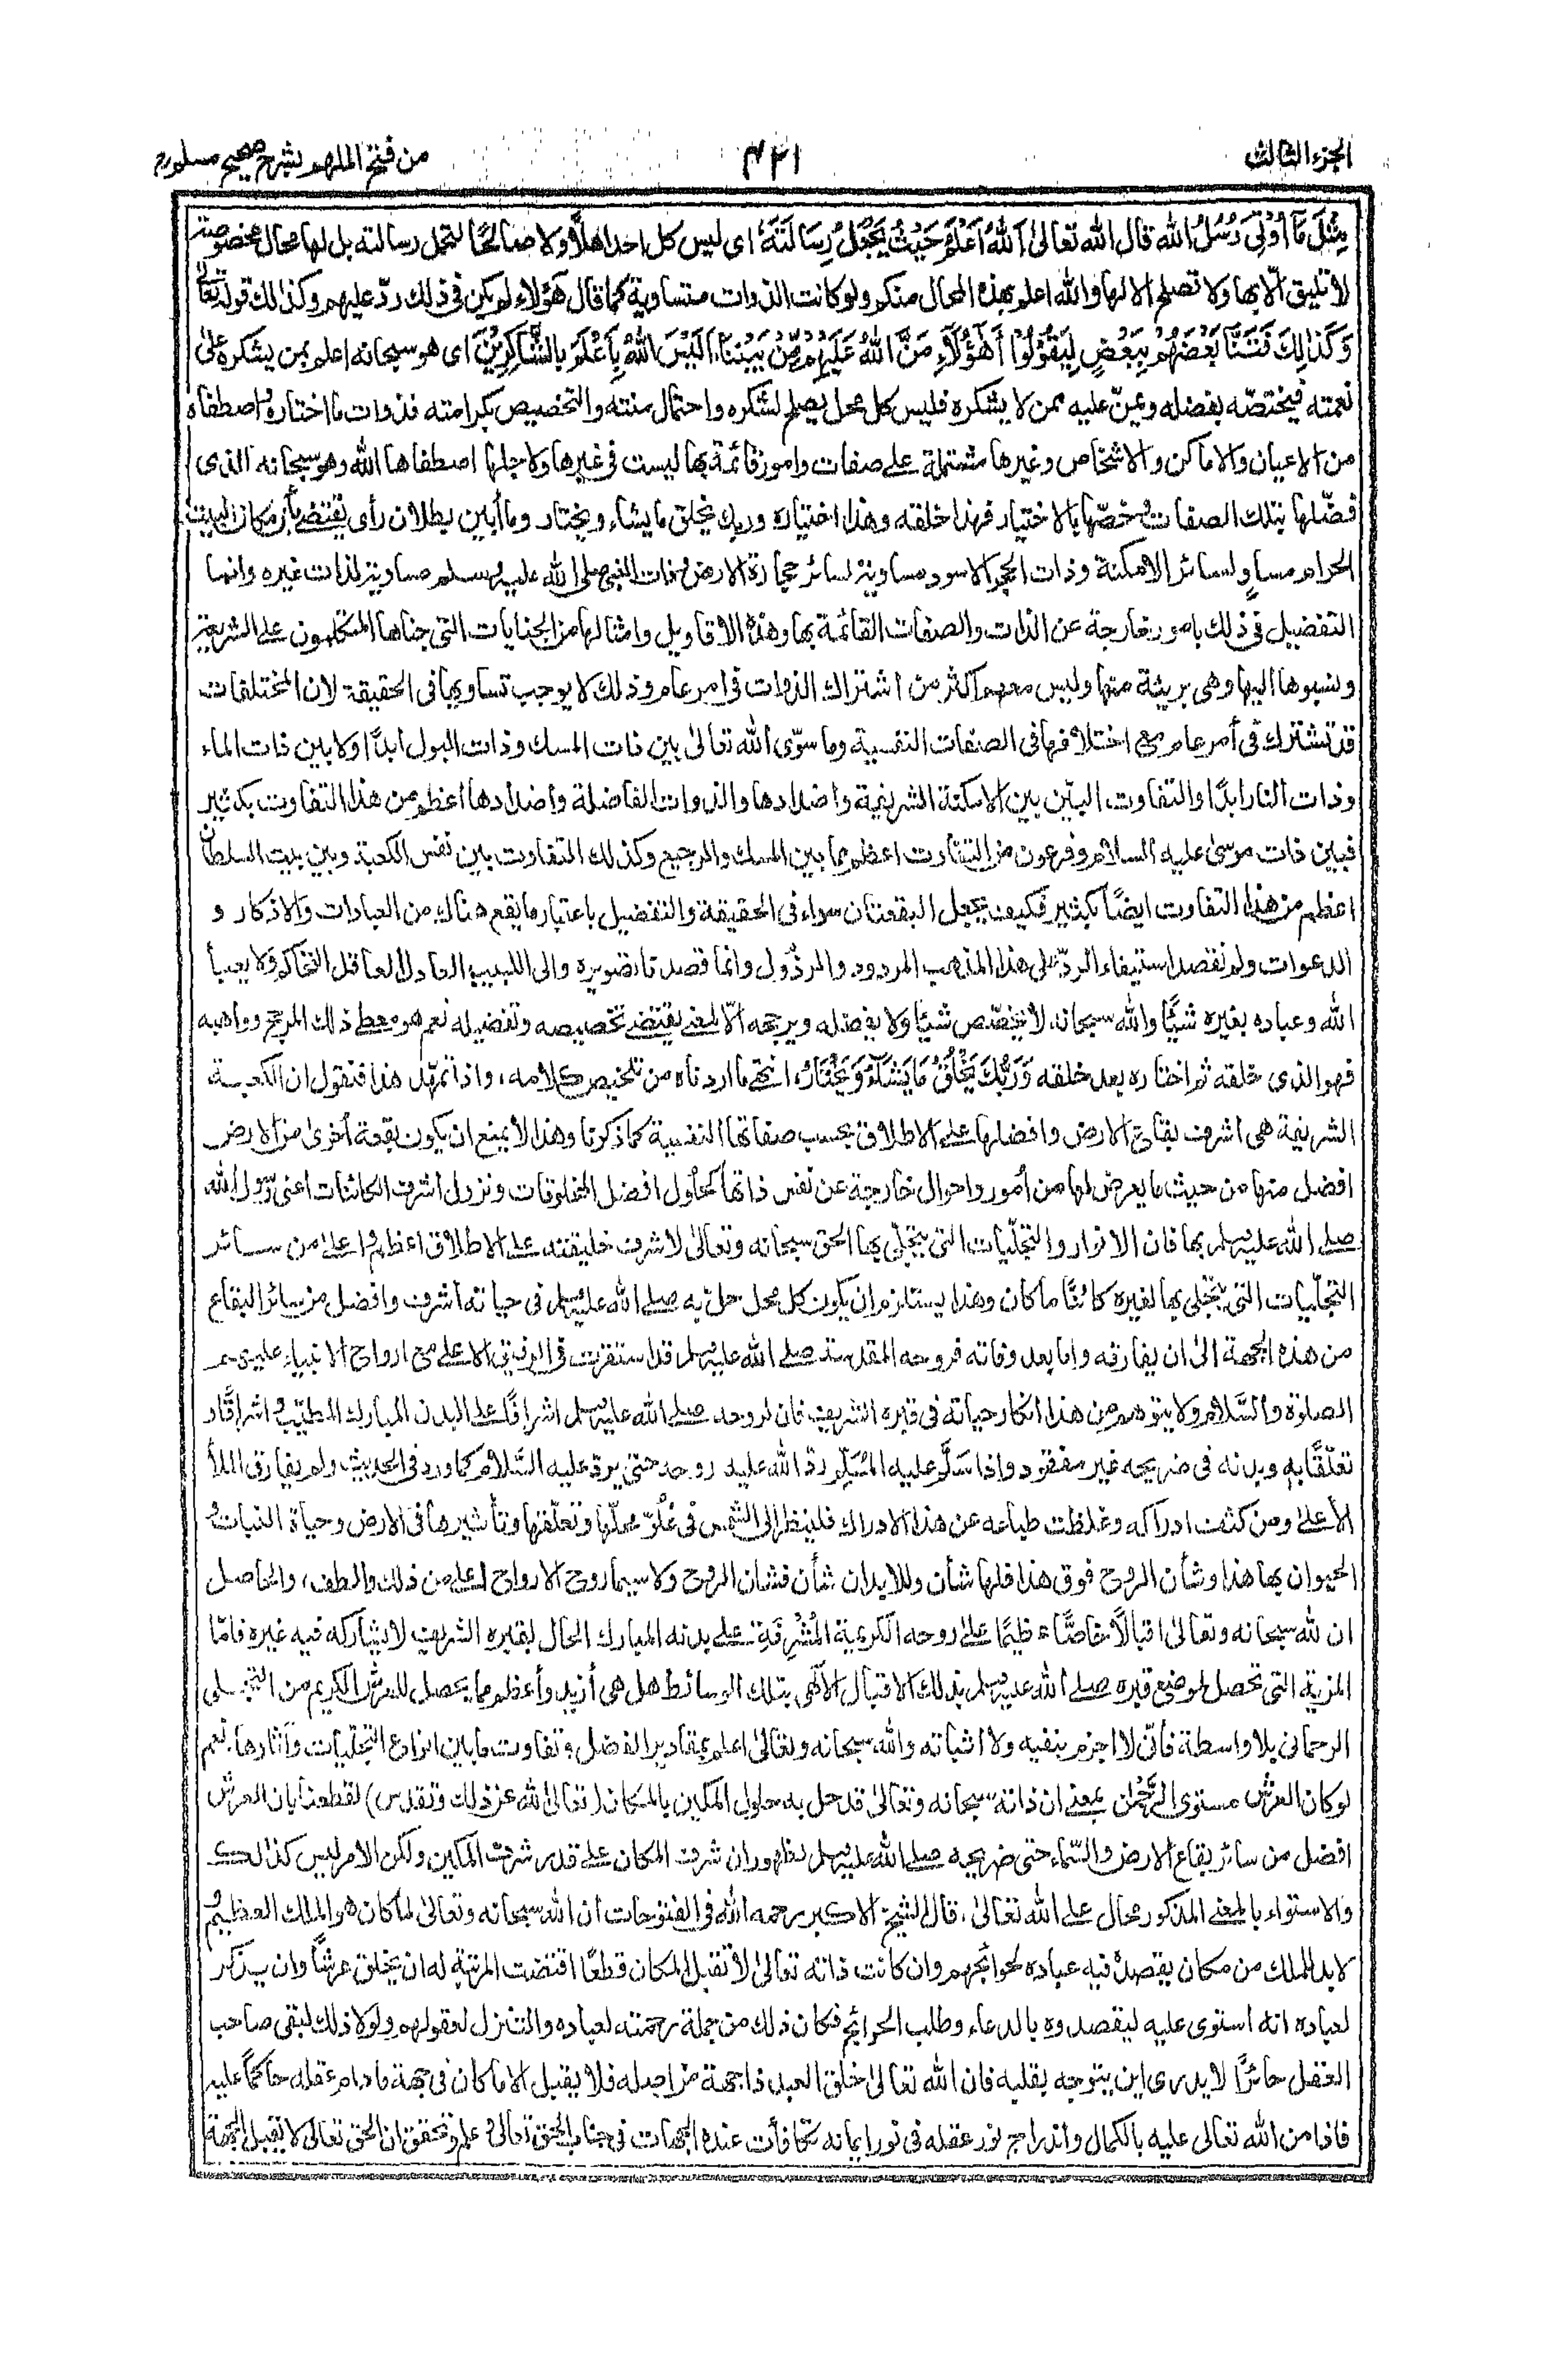 الجزء الثالث
٤٢١
من فتح الملهم بشرح صحيح مسلم
مِثْلَ مَا أُوْتِيَ رُسُلُ الله قال الله تعالىٰ اَللهُ اَعْلَمُ حَيْثُ يَجْعَلُ رِسَالَتَهٗ اى ليس كل احد اهلًا ولا صالحًا لتحمل رسالته بل لها محال مخصوصة
لا تليق الّا بها ولا تصلح الا لها والله اعلم بهذه المحال منكم ولو كانت الذوات متساوية كما قال هؤلاء لم يكن فى ذلك ردّ عليهم وكذلك قوله تعالىٰ
وَكَذٰلِكَ فَتَنَّا بَعْضَهُمْ بِبَعْضٍ لِيَقُوْلُوْا أَهٰؤُلَاءِ مَنَّ اللهُ عَلَيْهِمْ مِّنْ بَيْنِنَا اَلَيْسَ اللهُ بِأَعْلَمَ بِالشَّاكِرِيْنَ اى هو سبحانه اعلم بمن يشكره علىٰ
نعمته فيختصّه بفضله ويمنّ عليه ممن لا يشكره فليس كل محل يصلح لشكره واحتمال منته والتخصيص بكرامته فذوات ما اختاره واصطفاه
من الاعيان والاماكن والاشخاص وغيرها مشتملة على صفات وامور قائمة بها ليست فى غيرها ولاجلها اصطفاها الله وهو سبحانه الذى
فضّلها بتلك الصفات وخصّها بالاختيار فهذا خلقه وهذا اختياره وربك يخلق ما يشاء ويختار وما أبين بطلان رأى يقتضى بأن مكان البيت
الحرام مساوٍ لسائر الامكنة وذات الحجر الاسود مساوية لسائر حجارة الارض وذات النبى صلى الله عليه وسلم مساوية لذات غيره وانما
التفضيل فى ذلك بامور خارجة عن الذات والصفات القائمة بها وهذه الاقاويل وامثالها من الجنايات التى جناها المتكلمون على الشريعة
ونسبوها اليها وهى بريئة منها وليس معهم اكثر من اشتراك الذوات فى امر عام وذلك لا يوجب تساويها فى الحقيقة لان المختلفات
قد تشترك فى أمر عام مع اختلافها فى الصفات النفسية وما سوّى الله تعالىٰ بين ذات المسك وذات البول ابدًا ولا بين ذات الماء
وذات النار ابدًا والتفاوت البيّن بين الامكنة الشريفة واضدادها والذوات الفاضلة واضدادها اعظم من هذا التفاوت بكثير
فبين ذات موسىٰ عليه السلام وفرعون من التفاوت اعظم مما بين المسك والرجيع وكذلك التفاوت بين نفس الكعبة وبين بيت السلطان
اعظم من هذا التفاوت ايضًا بكثير فكيف تجعل البقعتان سواء فى الحقيقة والتفضيل باعتبار ما يقع هناك من العبادات والاذكار و
الدعوات ولم نقصد استيفاء الردّ على هذا المذهب المردود والمرذول وانما قصدنا تصويره والى اللبيب العادل العاقل التحاكم ولا يعبأ
الله وعباده بغيره شيئًا والله سبحانه لا يخصّص شيئا ولا يفضله ويرجحه الّا لمعنى يقتضى تخصيصه وتفضيله نعم هو معطى ذلك المرجح وواهبه
فهو الذى خلقه ثم اختاره بعد خلقه وَرَبُّكَ يَخْلُقُ مَا يَشَاءُ وَيَخْتَارُ، انتهى ما اردناه من تلخيص كلامه، واذا تمهّد هذا فنقول ان الكعبة
الشريفة هى اشرف بقاع الارض وافضلها على الاطلاق بحسب صفاتها النفسية كما ذكرنا وهذا لا يمنع ان يكون بقعة أخرى من الارض
افضل منها من حيث ما يعرض لها من أمور واحوال خارجية عن نفس ذاتها كحلول افضل المخلوقات ونزول اشرف الكائنات اعنى رسول الله
صلى الله عليه وسلم بها فان الانوار والتجلّيات التى يتجلّى بها الحق سبحانه وتعالىٰ لاشرف خليقته على الاطلاق اعظم واعلىٰ من سائر
التجلّيات التى يتجلى بها لغيره كائنًا ما كان وهذا يستلزم ان يكون كل محل حلّ به صلى الله عليه وسلم فى حياته اشرف وافضل من سائر البقاع
من هذه الجهة الىٰ ان يفارقه واما بعد وفاته فروحه المقدسة صلى الله عليه وسلم قد استقرت فى الرفيق الاعلى مع ارواح الانبياء عليهم
الصلوٰة والسَّلام ولا يتوهم من هذا انكار حياته فى قبره الشريف فان لروحه صلى الله عليه وسلم اشرافًا على البدن المبارك المطيّب واشراقًا و
تعلّقًا به وبدنه فى ضريحه غير مفقود واذا سَلَّم عليه المُسَلِّم ردّ الله عليه روحه حتى يردّ عليه السَّلام كما ورد فى الحديث ولم يفارق الملأ
الأعلىٰ ومن كثف ادراكه وغلظت طباعه عن هذا الادراك فلينظر الى الشمس فى عُلُوّ محلّها وتعلّقها وتأثيرها فى الارض وحياة النبات و
الحيوان بها هذا وشأن الروح فوق هذا فلها شأن وللابدان شأن فشان الروح ولا سيما روح الارواح اعلى من ذلك والطف، والحاصل
ان لله سبحانه وتعالىٰ اقبالًا خاصًّا عظيمًا علىٰ روحه الكريمة المُشْرِفَةِ على بدنه المبارك الحالّ بقبره الشريف لا يشاركه فيه غيره فامّا
المزية التى تحصل لموضع قبره صلى الله عليه وسلم بذلك الاقبال الالٰهى بتلك الوسائط هل هى أزيد وأعظم مما يحصل للعرش الكريم من التجلى
الرحمانى بلا واسطة، فانّى لا اجزم بنفيه ولا اثباته والله سبحانه وتعالىٰ اعلم بمقادير الفضل وتفاوت ما بين انواع التجلّيات وآثارها، نعم
لو كان العرش مستوى الرَّحْمٰن بمعنى ان ذاته سبحانه وتعالىٰ قد حل به حلول المكين بالمكان (تعالىٰ الله عن ذلك وتقدس) لقطعنا بان العرش
افضل من سائر بقاع الارض والسَّماء حتى ضريحه صلى الله عليه وسلم لظهور ان شرف المكان على قدر شرف المكين ولكن الامر ليس كذلك
والاستواء بالمعنى المذكور محال على الله تعالىٰ، قال الشيخ الاكبر رحمه الله فى الفتوحات ان الله سبحانه وتعالىٰ لما كان هو الملك العظيم و
لا بد للملك من مكان يقصده فيه عباده لحوائجهم وان كانت ذاته تعالىٰ لا تقبل المكان قطعًا اقتضت المرتبة له ان يخلق عرشًا وان يذكر
لعباده انه استوى عليه ليقصدوه بالدعاء وطلب الحوائج فكان ذلك من جملة رحمته لعباده والتنزل لعقولهم ولولا ذلك لبقى صاحب
العقل حائرًا لا يدرى اين يتوجه بقلبه فان الله تعالىٰ خلق العبد ذا جهة من اصله فلا يقبل الا ما كان فى جهة ما دام عقله حاكمًا عليه
فاذا من الله تعالى عليه بالكمال واندراج نور عقله فى نور ايمانه تكافأت عنده الجهات فى جناب الحق تعالىٰ وعلم وتحقق ان الحق تعالىٰ لا تقبل الجهة